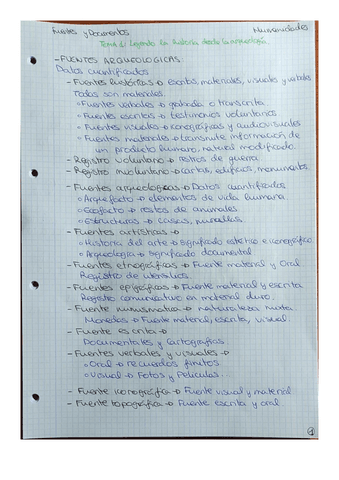 Fuentes y Documentos Humanidades
Tema 1: Leyendo la historia desde la arqueología
- FUENTES ARQUEOLOGICAS
Datos cuantificados
- Fuentes históricas → escritas, materiales, visuales y verbales
Todas son materiales.
○ Fuentes verbales → grabada o transcrita
○ Fuentes escritas → testimonios voluntarios
○ Fuentes visuales → iconográficas y audiovisuales
○ Fuentes materiales → transmite información de
un producto humano, natural modificado.
- Registro voluntario → restros de guerra.
- Registro involuntario → cartas, edificios, monumentos.
- Fuentes arqueologicas → Datos cuantificados
○ Arquefacto → elementos de vida humana.
○ Ecofacto → restos de animales
○ Estructuras → casas, murallas.
- Fuentes artísticas →
○ Historia del arte → significado estético e iconográfico
○ Arqueologia → significado documental
- Fuentes etnográficas → Fuente material y Oral
Registro de utensilios.
- Fuentes epigráficas → Fuente material y escrita
Registro comunicativo en material duro.
- Fuente numismatica → naturaleza mixta
Monedas → Fuente material, escrita, visual.
- Fuente escrita →
Documentales y Cartografías.
- Fuentes verbales y visuales →
○ Oral → recuerdos finitos.
○ Visual → Fotos y Películas...
- Fuente iconográfica → Fuente visual y material
- Fuente topográfica → Fuente escrita y oral
1